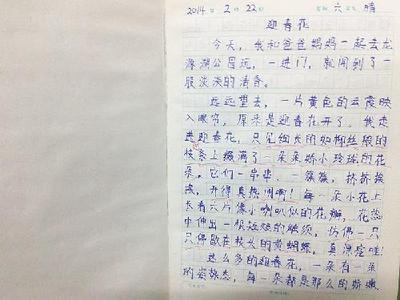 2014 2 22 六 晴
迎春花
今天，我和爸爸妈妈一起去龙
潭湖公园玩，一进门，就闻到了一
股淡淡的清香。
远远望去，一片黄色的云霞映
入眼帘，原来是迎春花开了。我走
进迎春花，只见细长的如柳丝般的
枝条上缀满了一朵朵娇小玲珑的花
朵。它们一串串，一簇簇，挤挤挨
挨，开得真热闹啊！每一朵小花上
长着六片像小喇叭似的花瓣，花蕊
中伸出一根短短的触须，仿佛一只
只停歇在枝头的黄蝴蝶，真漂亮啦！
这么多的迎春花，一朵有一朵
的姿态，每一朵都是那么的娇嫩